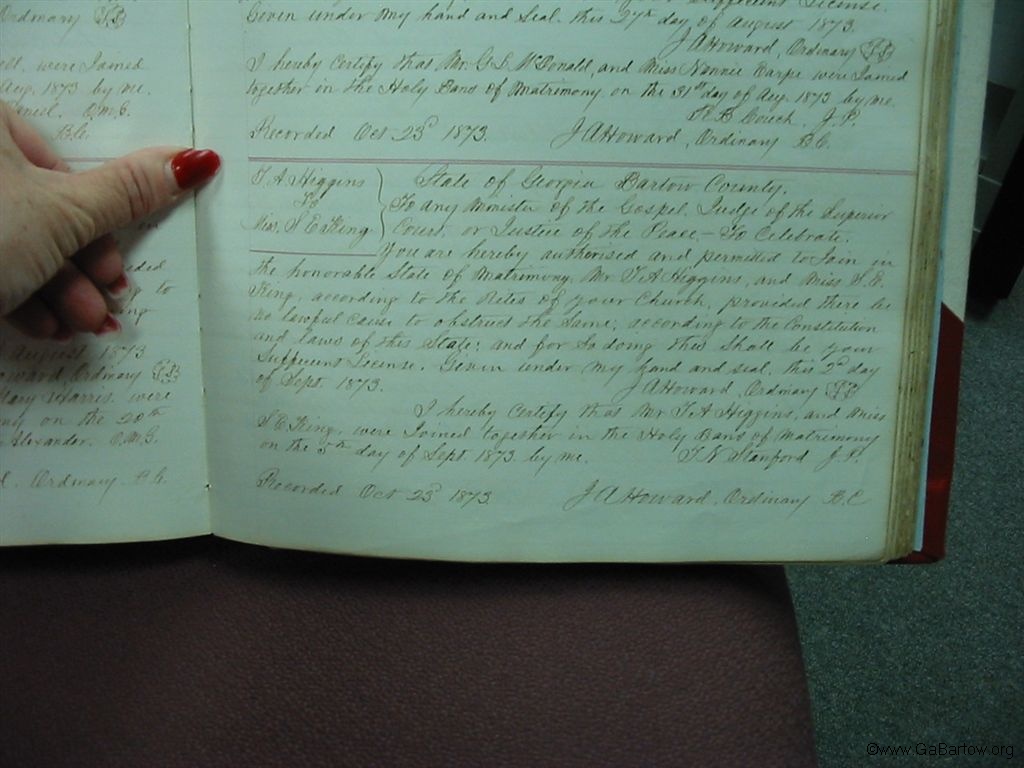 Ordinary
ell. were Joined
Aug. 1873 by me.
O.M.G.
B.C.
on
to
August 1873
Howard, Ordinary
Mary Harris were
ny on the 20th
Alexander. O.M.G.
d. Ordinary B.C.
Sufficient License.
Given under my hand and Seal. this 27th day of August 1873.
J A Howard, Ordinary
I hereby Certify that Mr. G. S. McDonald, and Miss Nannie Earpe were Joined
together in the Holy Bans of Matrimony on the 31st day of Aug. 1873 by me.
B Couch. J. P.
Recorded Oct 23d 1873. J A Howard, Ordinary B.C.
T. A. Higgins
To
Miss. S E King.
State of Georgia Bartow County.
To any Minister of the Gospel, Judge of the Superior
Court, or Justice of the Peace - To Celebrate.
You are hereby authorised and permitted to Join in
the honorable State of Matrimony, Mr. T A Higgins, and Miss S. E.
King, according to the Rites of your Church, provided there be
no lawful cause to obstruct the same; according to the Constitution
and laws of this State; and for so doing this shall be your
Sufficient License. Given under my hand and seal. this 2d day
of Sept. 1873. J A Howard, Ordinary
I hereby Certify that Mr T. A Higgins, and Miss
S. E. King, were Joined together in the Holy Bans of Matrimony
on the 5th day of Sept. 1873. by me. T. N Stanford J. P.
Recorded Oct 23d 1873 J A Howard, Ordinary B. C
©www.GaBartow.org